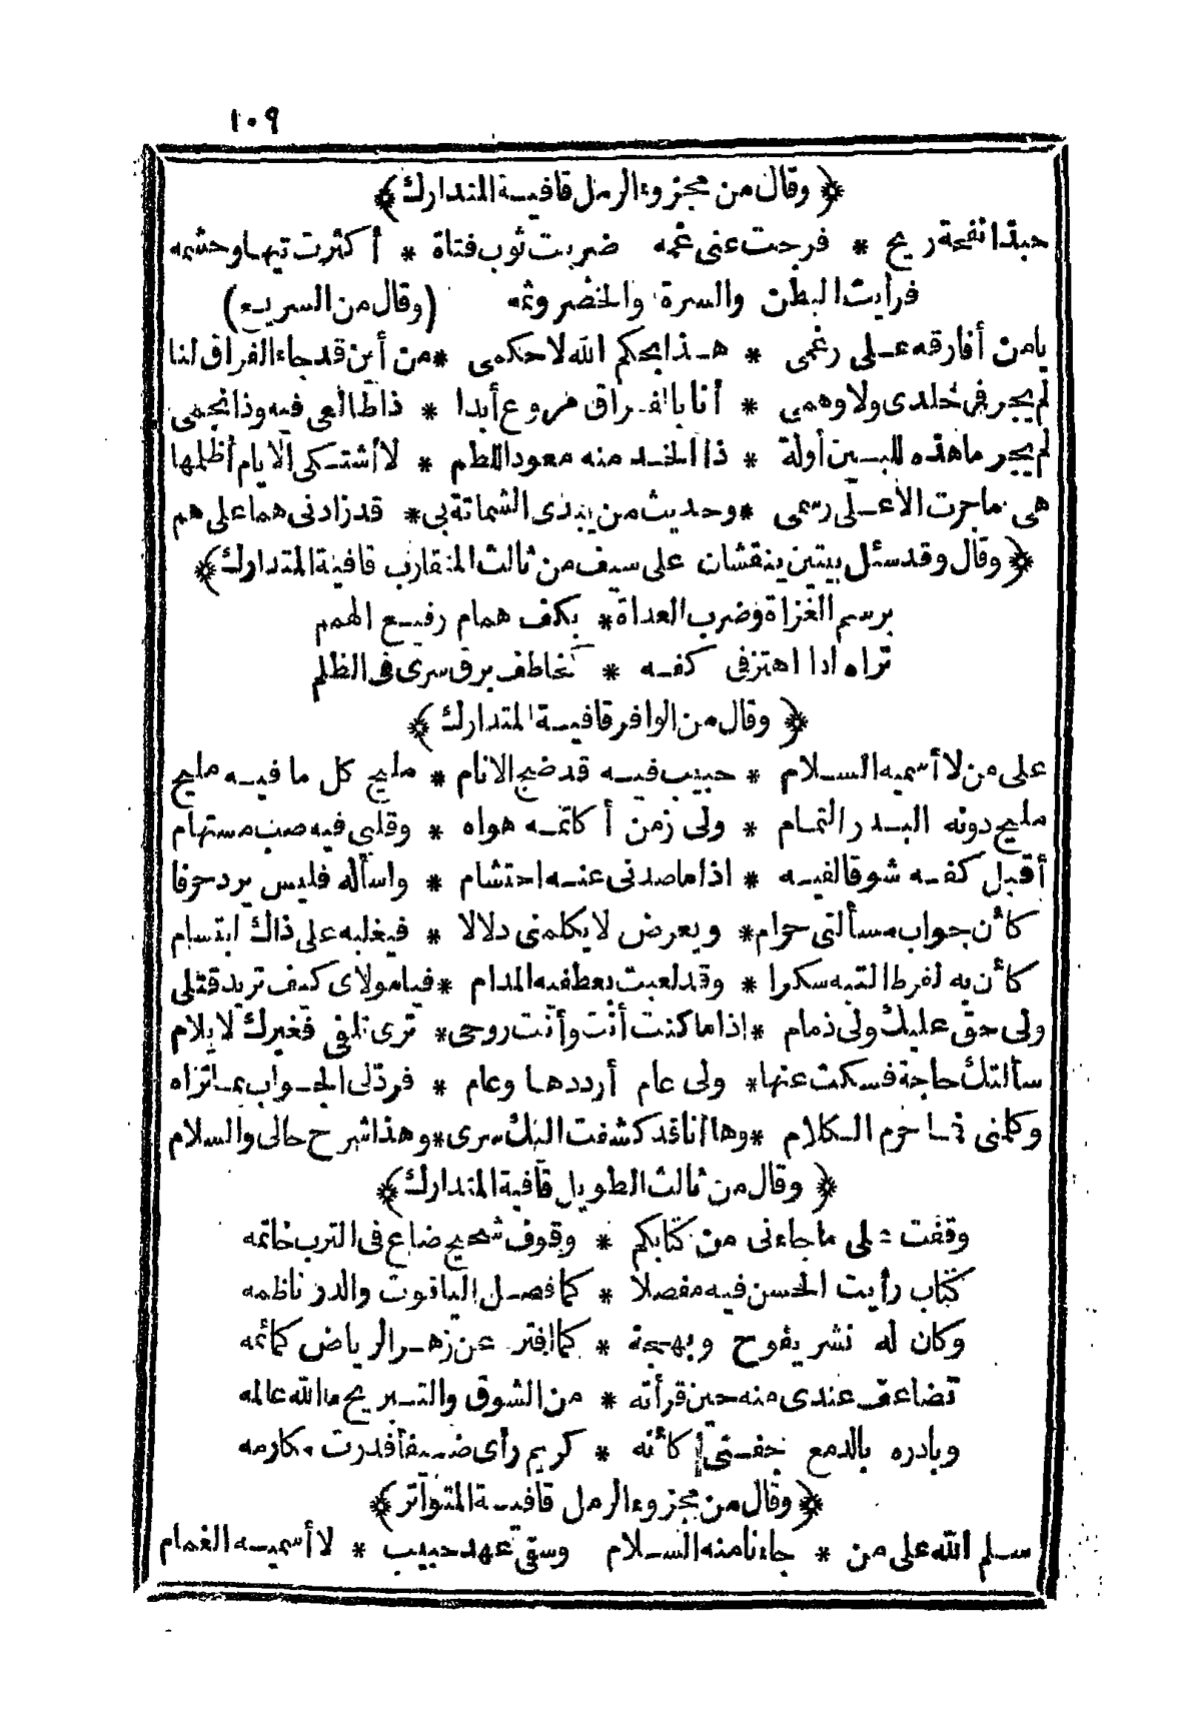 ١٠٩
﴿ وقال من مجزوء الرمل قافية المتدارك ﴾
حبذا نفحة ريح * فرجت عنى غمه ضربت ثوب فتاة * أكثرت تيها وحشمه
فرأيت البطن والسرة والخصر وثمه (وقال من السريع)
يا من أفارقه على رغمى * هذا بحكم الله لا حكمى * من أين قد جاء الفراق لنا
لم يجر فى خلدى ولا وهمى * أنا بالفراق مروع أبدا * ذا طالعى فيه وذا نجمى
لم يجر ما هذه للبين أولة * ذا الخد منه معود اللطم * لا أشتكى الايام أظلمها
هى ما جرت الا على رسمى * وحديث من يبدى الشماتة بى * قد زادنى هما على هم
﴿ وقال وقد سئل بيتين ينقشان على سيف من ثالث المتقارب قافية المتدارك ﴾
برسم الغزاة وضرب العداة * بكف همام رفيع الهمم
تراه اذا اهتز فى كفه * كخاطف برق سرى فى الظلم
﴿ وقال من الوافر قافية المتدارك ﴾
على من لا أسميه السلام * حبيب فيه قد ضج الانام * مليح كل ما فيه مليح
مليح دونه البدر التمام * ولى زمن أكاتمه هواه * وقلبى فيه صب مستهام
أقبل كفه شوقا لفيه * اذا ما صدنى عنه احتشام * واسأله فليس يرد حرفا
كأن جواب مسألتى حرام * ويعرض لا يكلمنى دلالا * فيغلبه على ذاك ابتسام
كأن به لفرط التيه سكرا * وقد لعبت بعطفيه المدام * فيا مولاى كيف تريد قتلى
ولى حق عليك ولى ذمام * اذا ما كنت أنت وأنت روحى * ترى تلفى فغيرك لا يلام
سألتك حاجة فسكت عنها * ولى عام أرددها وعام * فرد لى الجواب بما تراه
وكلمنى فما حرم الكلام * وها أنا قد كشفت اليك سرى * وهذا شرح حالى والسلام
﴿ وقال من ثالث الطويل قافية المتدارك ﴾
وقفت على ما جاءنى من كتابكم * وقوف شحيح ضاع فى الترب خاتمه
كتاب رأيت الحسن فيه مفصلا * كما فصل الياقوت والدر ناظمه
وكان له نشر يفوح وبهجة * كما افتر عن زهر الرياض كمائمه
تضاعف عندى منه حين قرأته * من الشوق والتبريح ما الله عالمه
وبادره بالدمع جفنى كأنه * كريم رأى ضيفا فدرت مكارمه
﴿ وقال من مجزوء الرمل قافية المتواتر ﴾
سلم الله على من * جاءنا منه السلام وسقى عهد حبيب * لا أسميه الغمام